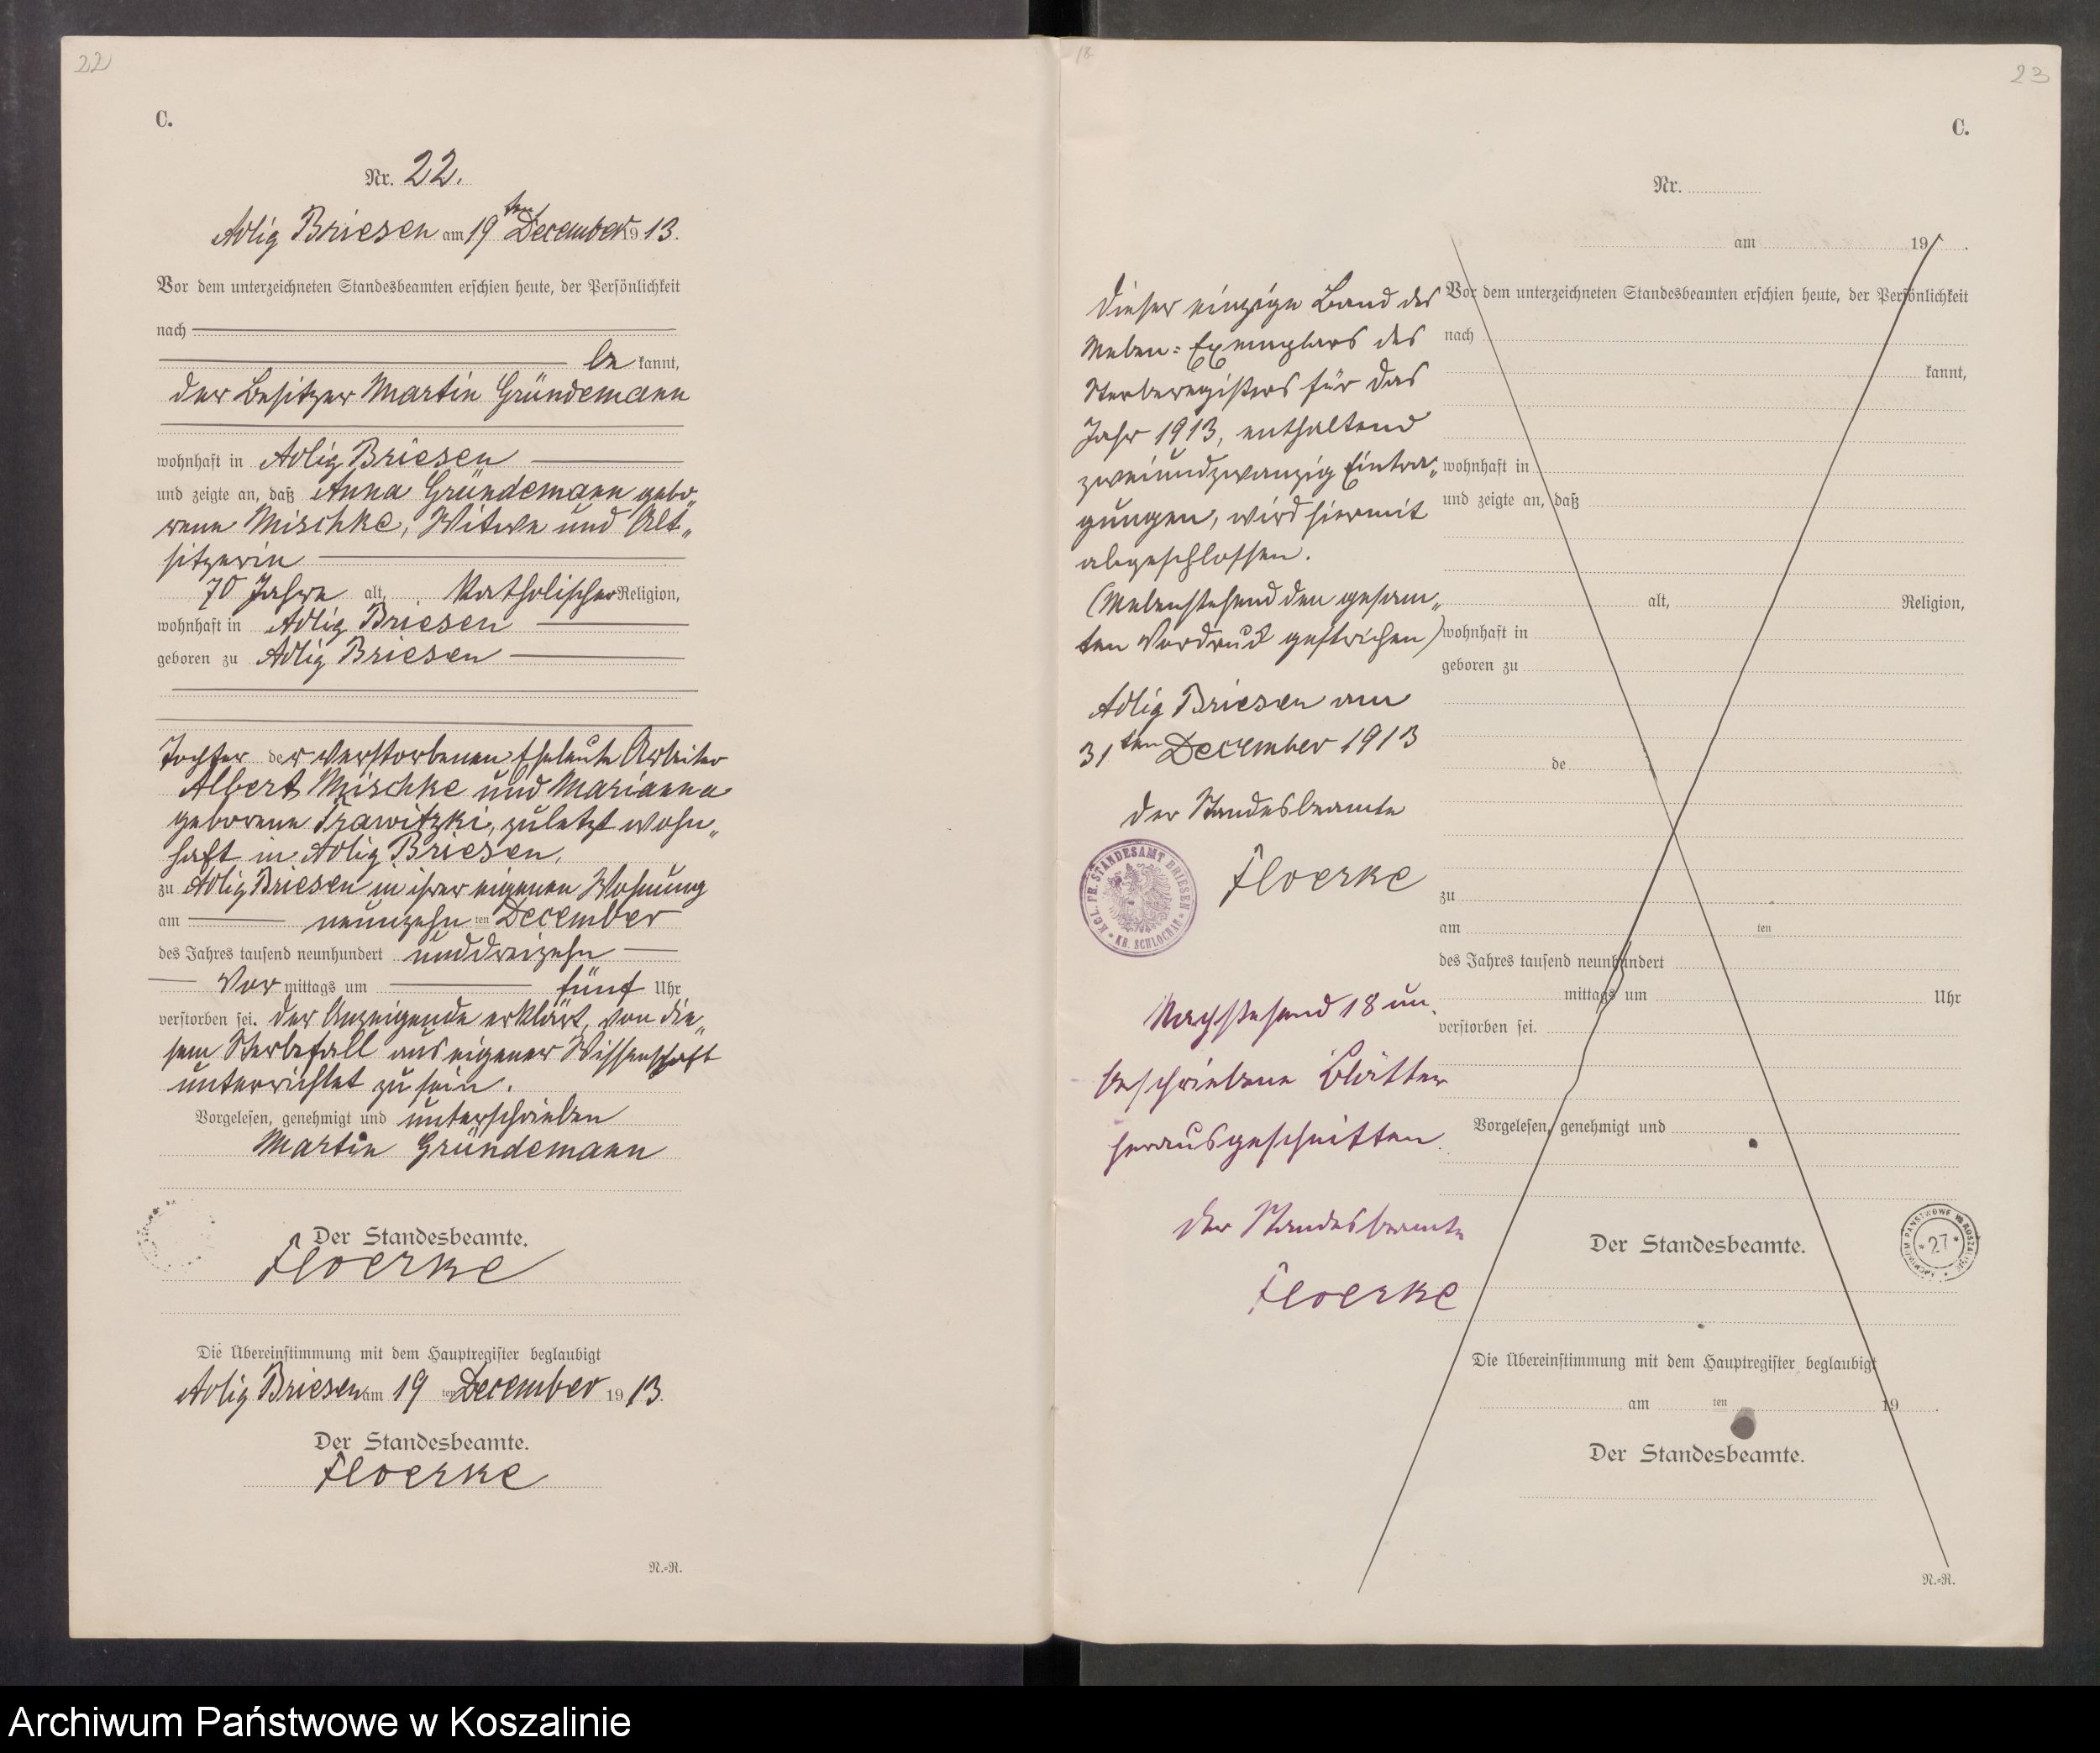 22
C.
Nr. 22.
Adlig Briesen am 19ten December 1913.
Vor dem unterzeichneten Standesbeamten erschien heute, der Persönlichkeit
nach
be kannt,
der Besitzer Martin Gründemann
wohnhaft in Adlig Briesen
und zeigte an, daß Anna Gründemann gebo„
rene Mischke, Witwe und Alt„
sitzerin
70 Jahre alt, Katholischer Religion,
wohnhaft in Adlig Briesen
geboren zu Adlig Briesen
Tochter der verstorbenen Eheleute Arbeiter
Albert Mischke und Marianna
geborene Trawitzki, zuletzt wohn„
haft in Adlig Briesen,
zu Adlig Briesen in ihrer eigenen Wohnung
am neunzehn ten December
des Jahres tausend neunhundert unddreizehn
Vor mittags um fünf Uhr
verstorben sei. Der Anzeigende erklärt, von die„
sem Sterbefall aus eigener Wissenschaft
unterrichtet zu sein.
Vorgelesen, genehmigt und unterschrieben
Martin Gründemann
Der Standesbeamte.
Floerke
Die Übereinstimmung mit dem Hauptregister beglaubigt
Adlig Briesen am 19 ten December 1913.
Der Standesbeamte.
Floerke
N.=R.
18
23
C.
Nr.
am 19 .
Dieser einzige Band des
Neben=Exemplars des
Sterberegisters für das
Jahr 1913, enthaltend
zweiundzwanzig Eintra„
gungen, wird hiermit
abgeschlossen.
(Nebenstehend den gesam„
ten Vordruck gestrichen)
Adlig Briesen am
31ten December 1913
Der Standesbeamte
Floerke
KGL. PR. STANDESAMT BRIESEN
* KR. SCHLOCHAU *
Nachstehend 18 un„
beschriebene Blätter
herausgeschnitten.
Der Standesbeamte
Floerke
Vor dem unterzeichneten Standesbeamten erschien heute, der Persönlichkeit
nach
kannt,
wohnhaft in
und zeigte an, daß
alt, Religion,
wohnhaft in
geboren zu
de
zu
am ten
des Jahres tausend neunhundert
mittags um Uhr
verstorben sei.
Vorgelesen, genehmigt und
Der Standesbeamte.
ARCHIWUM PAŃSTWOWE W KOSZALINIE
* 27 *
Die Übereinstimmung mit dem Hauptregister beglaubigt
am ten 19 .
Der Standesbeamte.
N.=R.
Archiwum Państwowe w Koszalinie